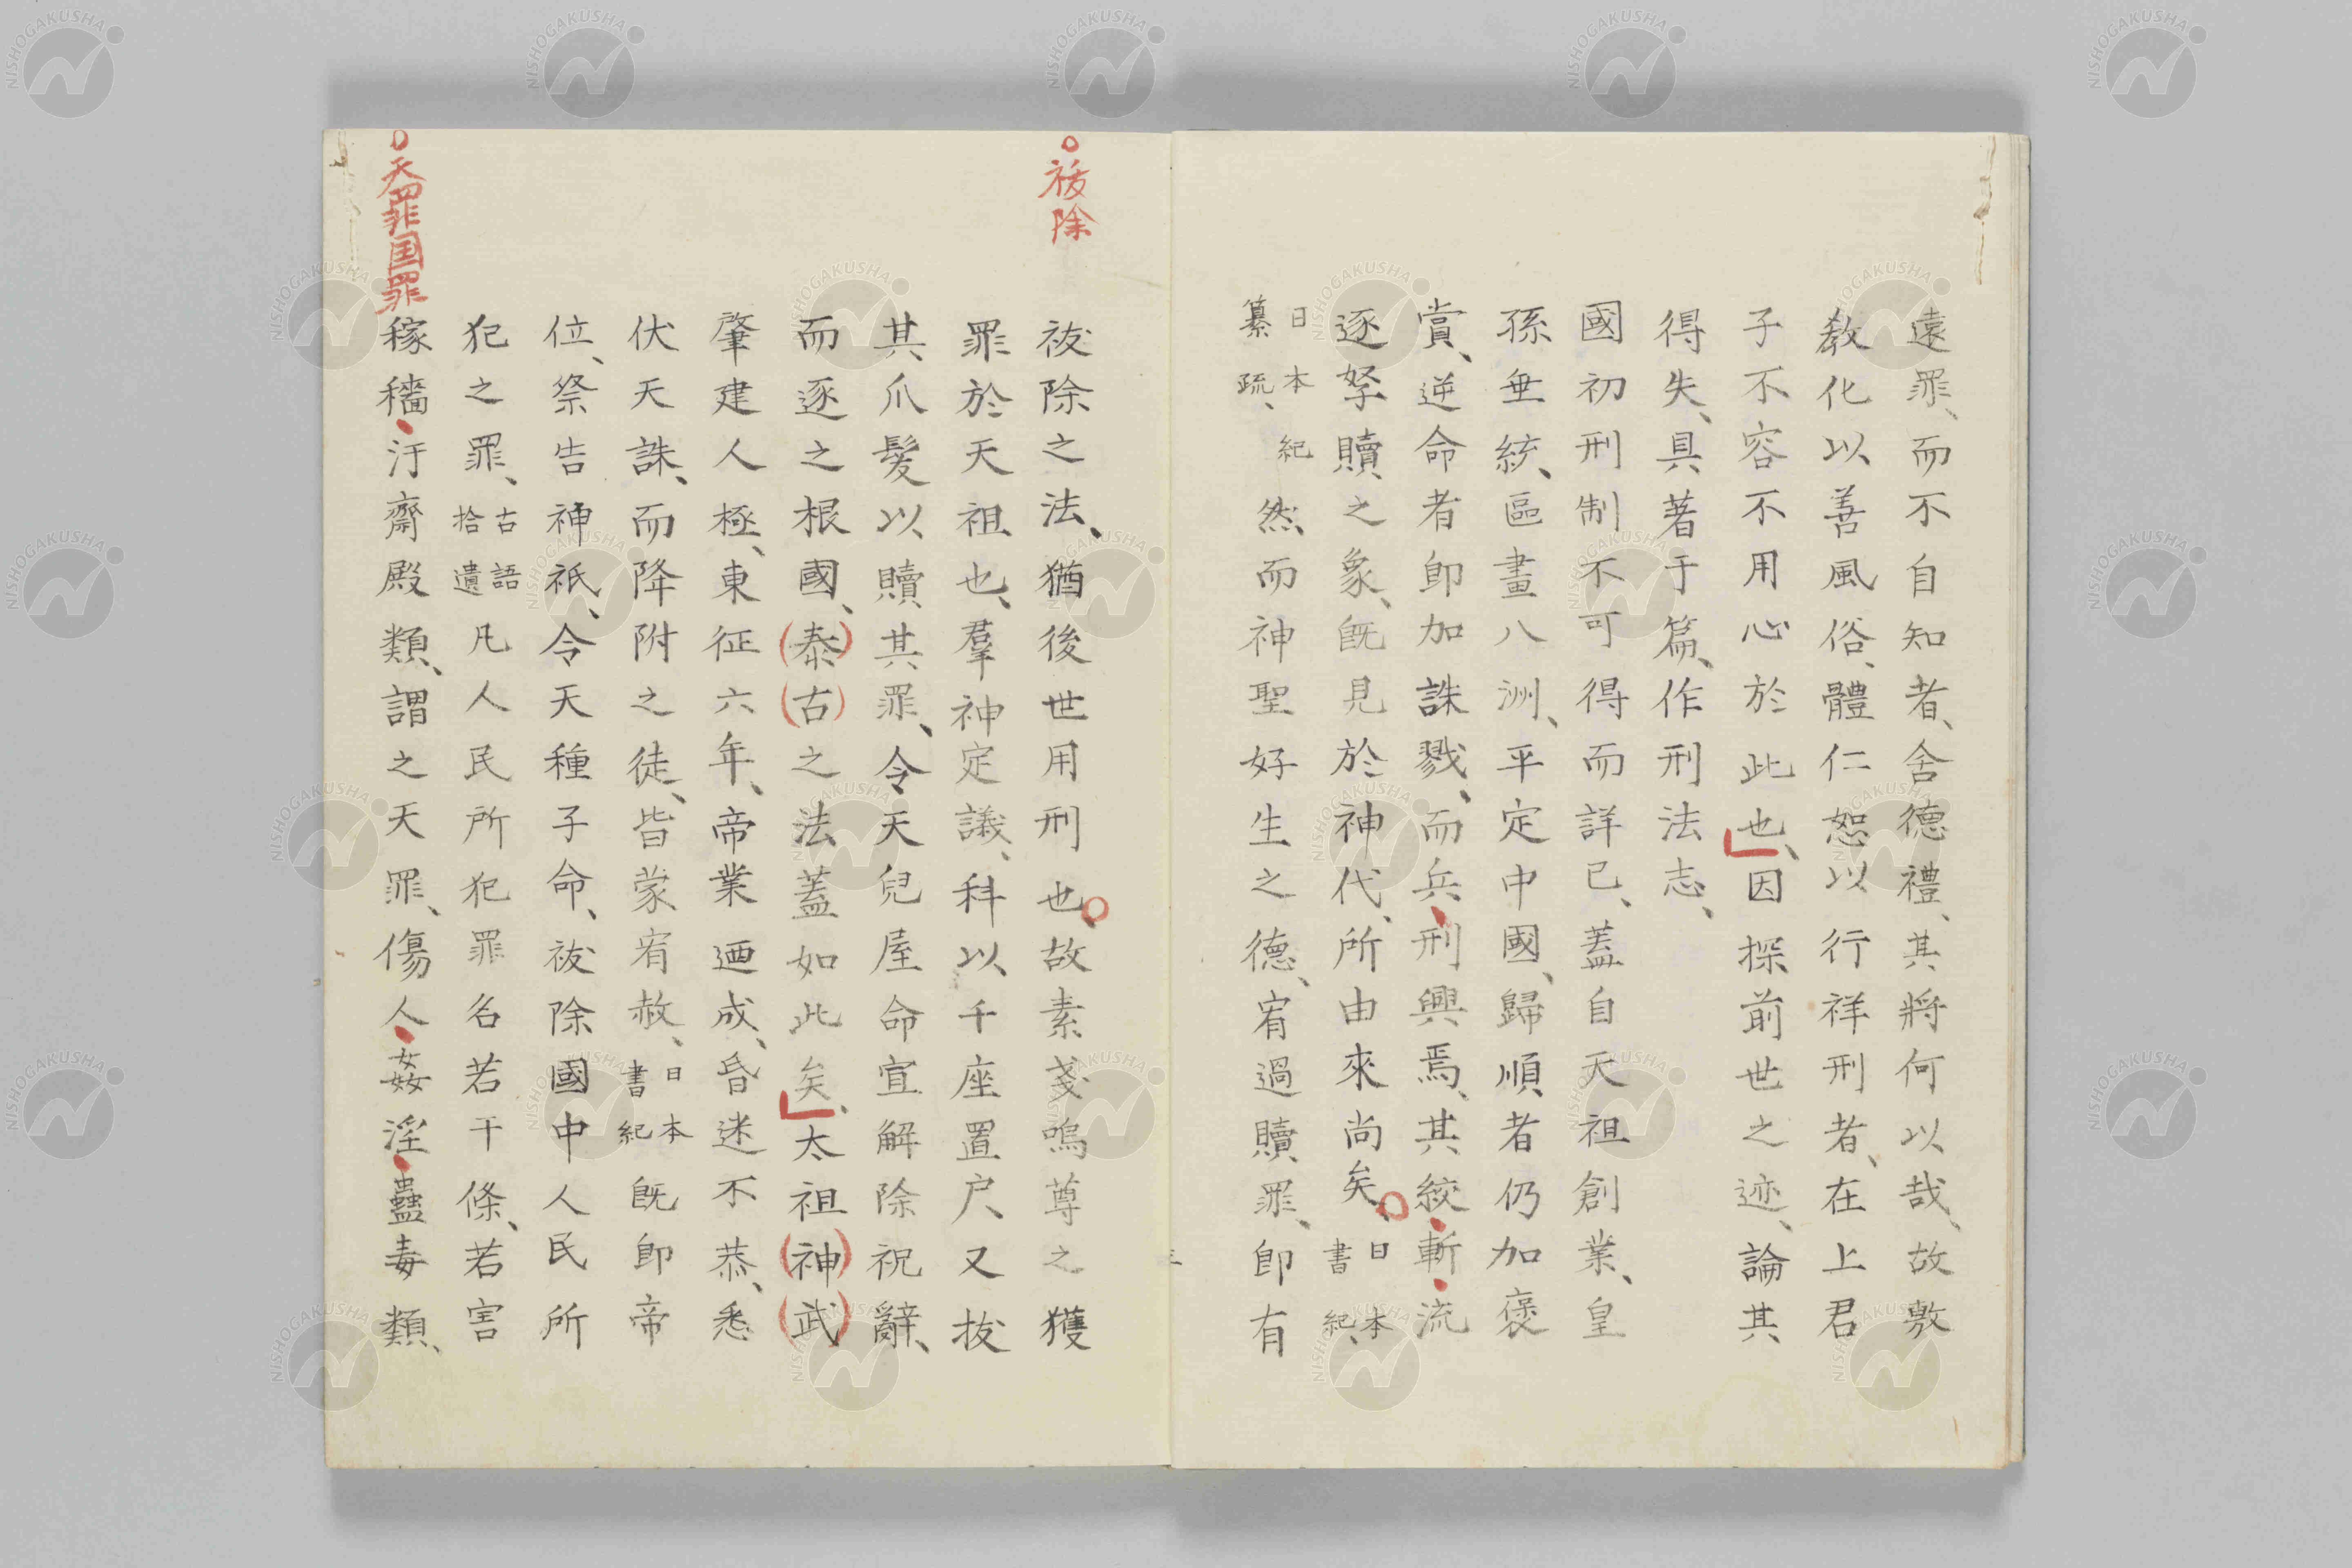 遠罪、而不自知者、舍德禮、其將何以哉、故敷
教化以善風俗、體仁恕以行祥刑者、在上君
子不容不用心於此也、因探前世之迹、論其
得失、具著于篇、作刑法志、
國初刑制不可得而詳已、蓋自天祖創業、皇
孫垂統、區畫八洲、平定中國、歸順者仍加褒
賞、逆命者卽加誅戮、而兵・刑興焉、其絞・斬・流
逐孥贖之象、旣見於神代、所由來尚矣、日本書紀、
日本紀纂疏、然而神聖好生之德、宥過贖罪、卽有
○祓除
祓除之法、猶後世用刑也、故素戔嗚尊之獲
罪於天祖也、羣神定議、科以千座置戶、又拔
其爪髮以贖其罪、令天兒屋命宣解除祝辭、
而逐之根國、(泰)(古)之法蓋如此矣、太祖(神)(武)
肇建人極、東征六年、帝業迺成、昏迷不恭、悉
伏天誅、而降附之徒、皆蒙宥赦、日本書紀旣卽帝
位、祭告神祇、令天種子命、祓除國中人民所
犯之罪、古語拾遺凡人民所犯罪名若干條、若害
○天罪国罪
稼穡・汙齋殿類、謂之天罪、傷人・姦淫・蠱毒類、
NISHOGAKUSHA